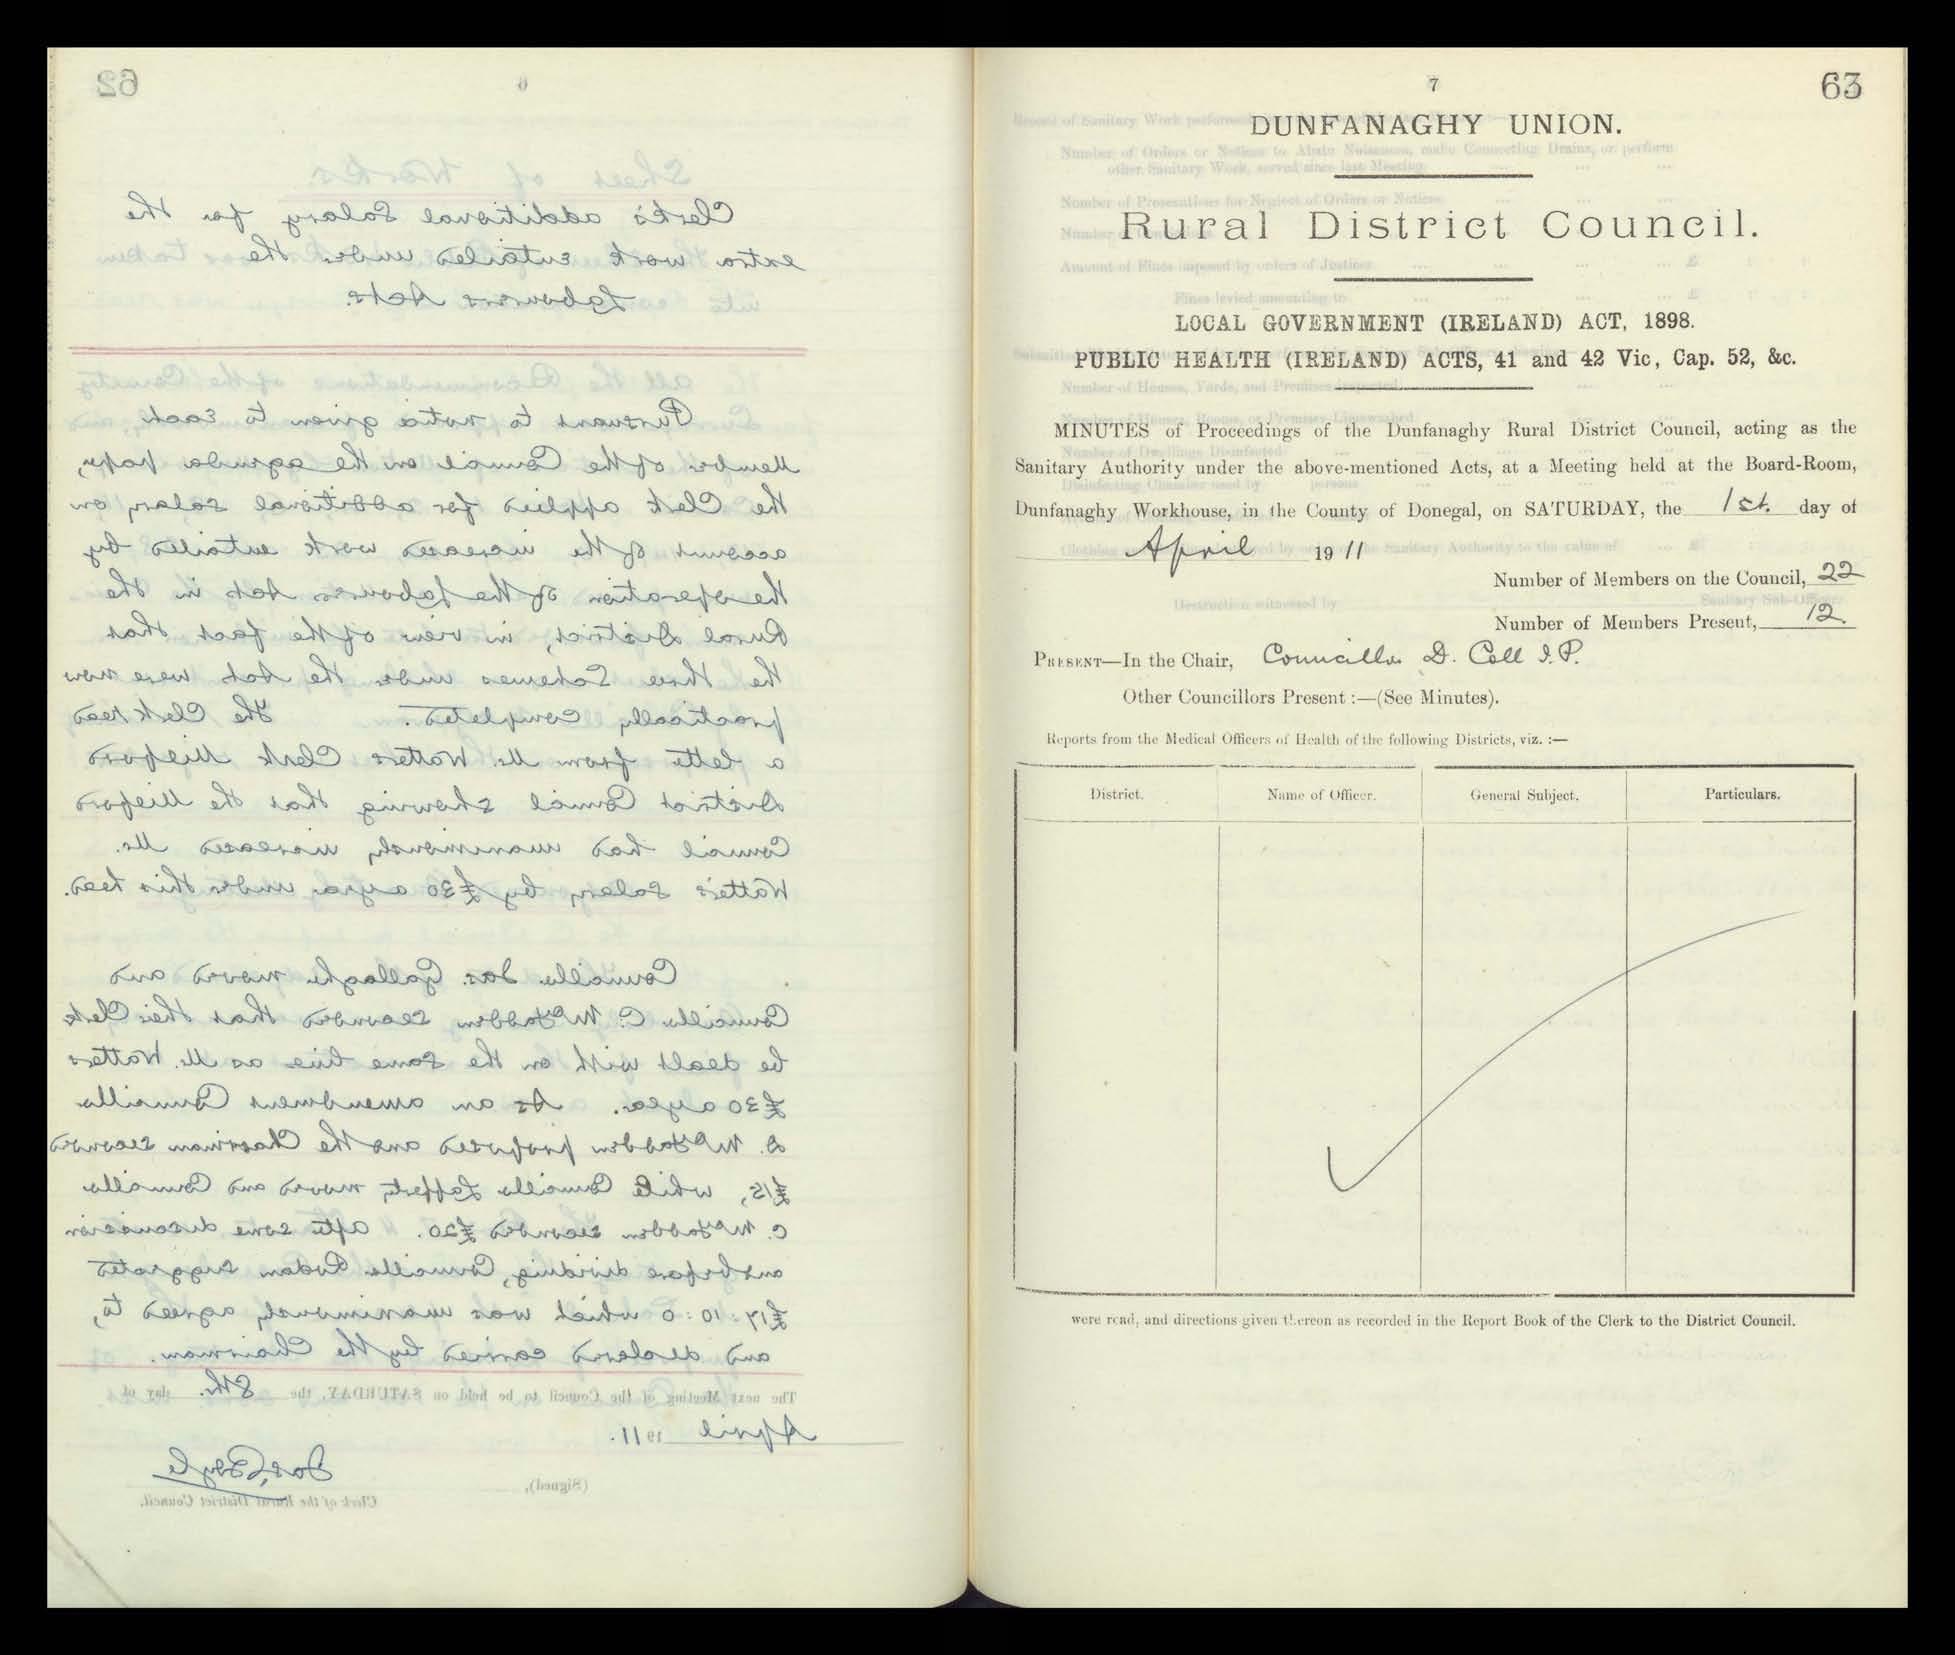 62
6
Clerk's additional Salary for the
extra work entailed under the
Labourers Acts.
Pursuant to notice given to each
Member of the Council on the agenda paper,
the Clerk applied for additional salary on
account of the increased work entailed by
the operation of the Labourers Act in the
Rural District, in view of the fact that
the three Schemes under the Act were now
practically completed. The Clerk read
a letter from Mr. Watters Clerk Milford
District Council showing that the Milford
Council had unanimously increased Mr.
Watter's salary by £30 a year under this head.
Councillor Jas. Gallagher moved and
Councillor C. McFadden seconded that their Clerk
be dealt with on the same line as Mr. Watters
£30 a year. As an amendment Councillor
D. McFadden proposed and the Chairman seconded
£15, while Councillor Lafferty moved and Councillor
C. McFadden seconded £20. After some discussion
and before dividing, Councillor Rodan suggested
£17:10:0 which was unanimously agreed to,
and declared carried by the Chairman.
The next Meeting of the Council to be held on SATURDAY, the 8th. day of
April 1911.
(Signed), Jas. Boyle
Clerk of the Rural District Council.
7
63
DUNFANAGHY UNION.
Rural District Council.
LOCAL GOVERNMENT (IRELAND) ACT, 1898.
PUBLIC HEALTH (IRELAND) ACTS, 41 and 42 Vic, Cap. 52, &c.
MINUTES of Proceedings of the Dunfanaghy Rural District Council, acting as the
Sanitary Authority under the above-mentioned Acts, at a Meeting held at the Board-Room,
Dunfanaghy Workhouse, in the County of Donegal, on SATURDAY, the 1st. day of
April 1911
Number of Members on the Council, 22
Number of Members Present, 12.
PRESENT—In the Chair, Councillor D. Coll J.P.
Other Councillors Present :—(See Minutes).
Reports from the Medical Officers of Health of the following Districts, viz. :—
District. Name of Officer. General Subject. Particulars.
were read, and directions given thereon as recorded in the Report Book of the Clerk to the District Council.